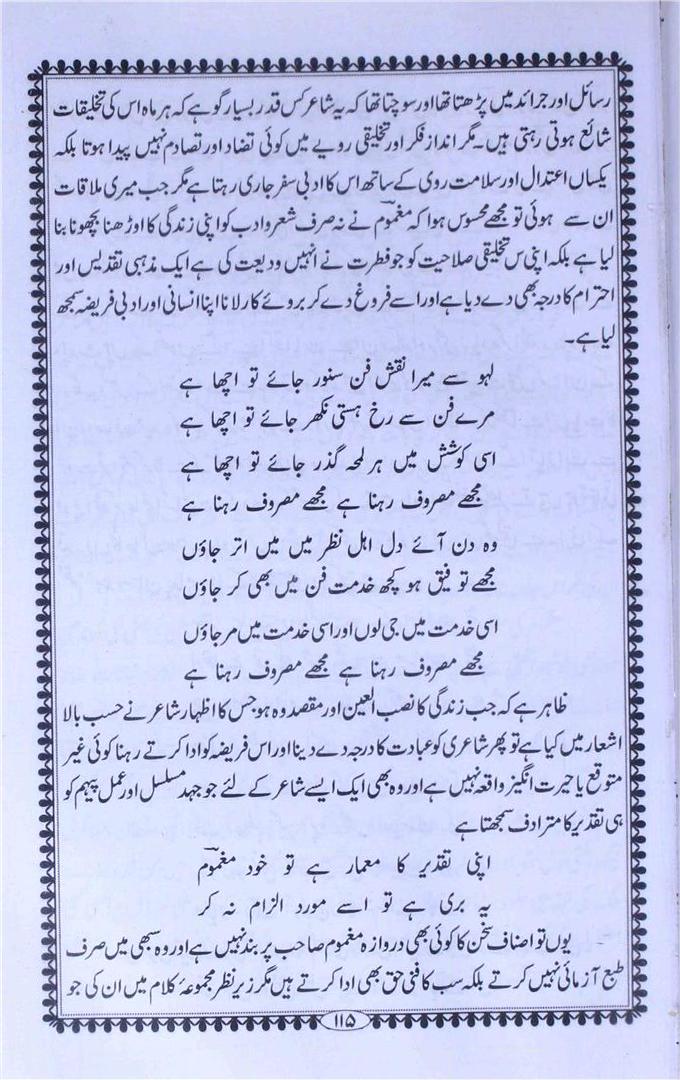 رسائل اور جرائد میں پڑھتا تھا اور سوچتا تھا کہ یہ شاعر کس قدر بسیار گو ہے کہ ہر ماہ اس کی تخلیقات
شائع ہوتی رہتی ہیں۔ مگر انداز فکر اور تخلیقی رویے میں کوئی تضاد اور تصادم نہیں پیدا ہوتا بلکہ
یکساں اعتدال اور سلامت روی کے ساتھ اس کا ادبی سفر جاری رہتا ہے مگر جب میری ملاقات
ان سے ہوئی تو مجھے محسوس ہوا کہ مغمومؔ نے نہ صرف شعر و ادب کو اپنی زندگی کا اوڑھنا بچھونا بنا
لیا ہے بلکہ اپنی س تخلیقی صلاحیت کو جو فطرت نے انہیں ودیعت کی ہے ایک مذہبی تقدیس اور
احترام کا درجہ بھی دے دیا ہے اور اسے فروغ دے کر بروئے کار لانا اپنا انسانی اور ادبی فریضہ سمجھ
لیا ہے۔
لہو سے میرا نقش فن سنور جائے تو اچھا ہے
مرے فن سے رخ ہستی نکھر جائے تو اچھا ہے
اسی کوشش میں ہر لمحہ گذر جائے تو اچھا ہے
مجھے مصروف رہنا ہے مجھے مصروف رہنا ہے
وہ دن آئے دل اہل نظر میں میں اتر جاؤں
مجھے توفیق ہو کچھ خدمت فن میں بھی کر جاؤں
اسی خدمت میں جی لوں اور اسی خدمت میں مر جاؤں
مجھے مصروف رہنا ہے مجھے مصروف رہنا ہے
ظاہر ہے کہ جب زندگی کا نصب العین اور مقصد وہ ہو جس کا اظہار شاعر نے حسب بالا
اشعار میں کیا ہے تو پھر شاعری کو عبادت کا درجہ دے دینا اور اس فریضہ کو ادا کرتے رہنا کوئی غیر
متوقع یا حیرت انگیز واقعہ نہیں ہے اور وہ بھی ایک ایسے شاعر کے لئے جو جہد مسلسل اور عمل پیہم کو
ہی تقدیر کا مترادف سمجھتا ہے
اپنی تقدیر کا معمار ہے تو خود مغمومؔ
یہ بری ہے تو اسے مورد الزام نہ کر
یوں تو اصناف سخن کا کوئی بھی دروازہ مغموم صاحب پر بند نہیں ہے اور وہ سبھی میں صرف
طبع آزمائی نہیں کرتے بلکہ سب کا فنی حق بھی ادا کرتے ہیں مگر زیر نظر مجموعۂ کلام میں ان کی جو
۱۱۵